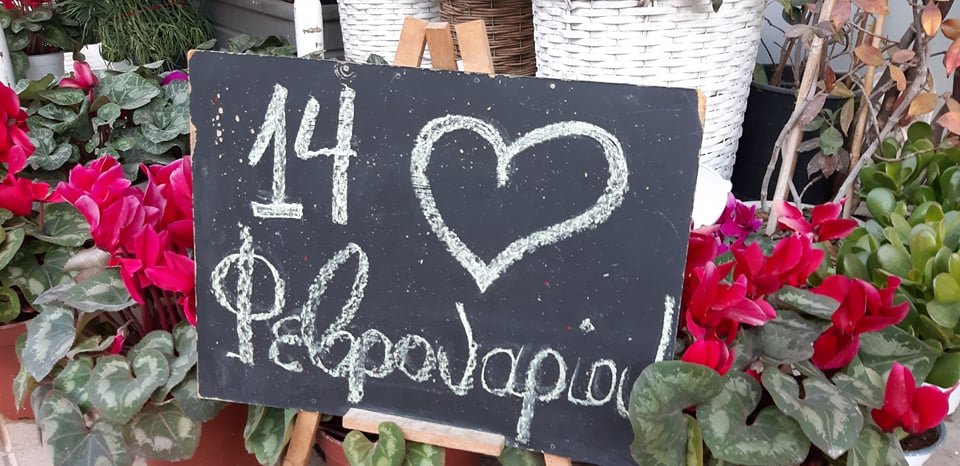 14
Φεβρουαρίου